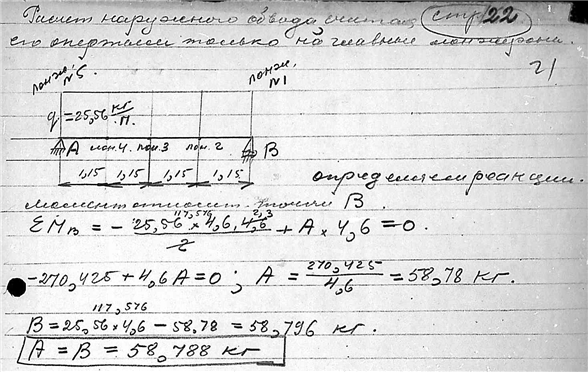 Расчет наружного обвода считая стр 22
его опертым только на главные лонжероны.
21
лонж. №5. лонж. №1
q = 25,56 кг/п.
A лон.4. лон.3 лон.2 B
1,15 1,15 1,15 1,15 определяем реакции.
момент относит. точки B.
ΣM_B = - 25,56 × 4,6 · 4,6 / 2 + A × 4,6 = 0.
117,576 2,3
-270,425 + 4,6 A = 0 ; A = 270,425 / 4,6 = 58,78 кг.
117,576
B = 25,56 × 4,6 - 58,78 = 58,796 кг.
A = B = 58,788 кг